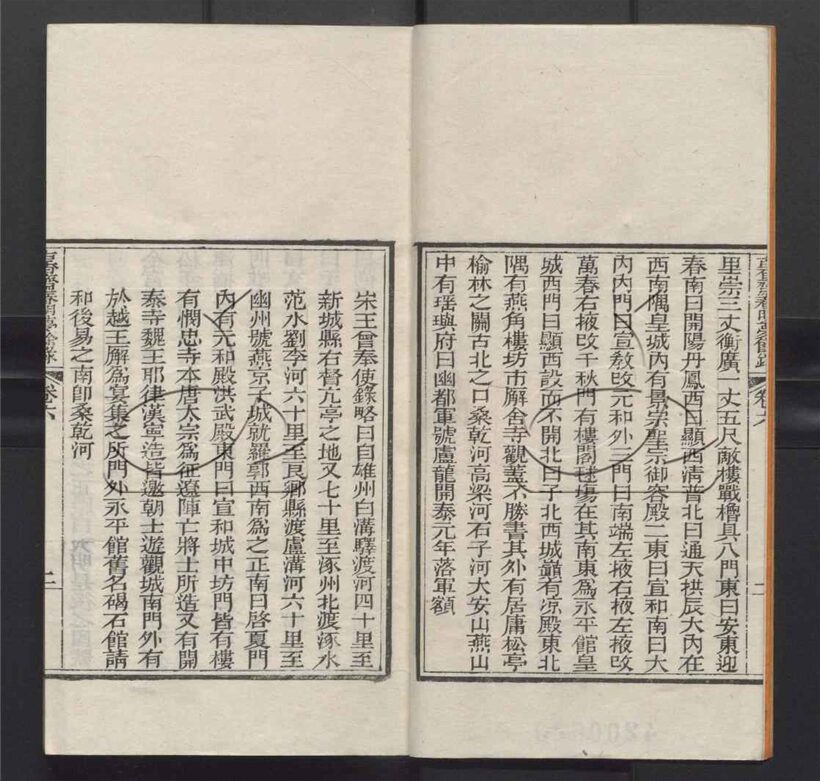 里崇三丈衡廣一丈五尺敵樓戰櫓具八門東曰安東迎
春南曰開陽丹鳳西曰顯西清晉北曰通天拱辰大內在
西南隅皇城內有景宗聖宗御容殿二東曰宣和南曰大
內內門曰宣敎改元和外三門曰南端左掖右掖左掖改
萬春右掖改千秋門有樓閣毬場在其南東爲永平館皇
城西門曰顯西設而不開北曰子北西城巔有涼殿東北
隅有燕角樓坊市廨舍寺觀蓋不勝書其外有居庸松亭
榆林之關古北之口桑乾河高梁河石子河大安山燕山
中有瑤璵府曰幽都軍號盧龍開泰元年落軍額
宋王曾奉使錄略曰自雄州白溝驛渡河四十里至
新城縣右督亢亭之地又七十里至涿州北渡涿水
范水劉李河六十里至艮鄉縣渡盧溝河六十里至
幽州號燕京子城就羅郭西南爲之正南曰啓夏門
內有元和殿洪武殿東門曰宣和城中坊門皆有樓
有憫忠寺本唐太宗爲征遼陣亡將士所造又有開
泰寺魏王耶律漢寧造皆邀朝士遊觀城南門外有
於越王廨爲宴集之所門外永平館舊名碣石館請
和後易之南卽桑乾河
卷六
二